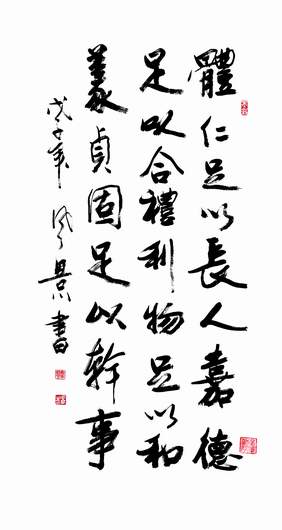 體仁足以長人嘉德
足以合禮利物足以和
義貞固足以幹事
戊子年 風景書